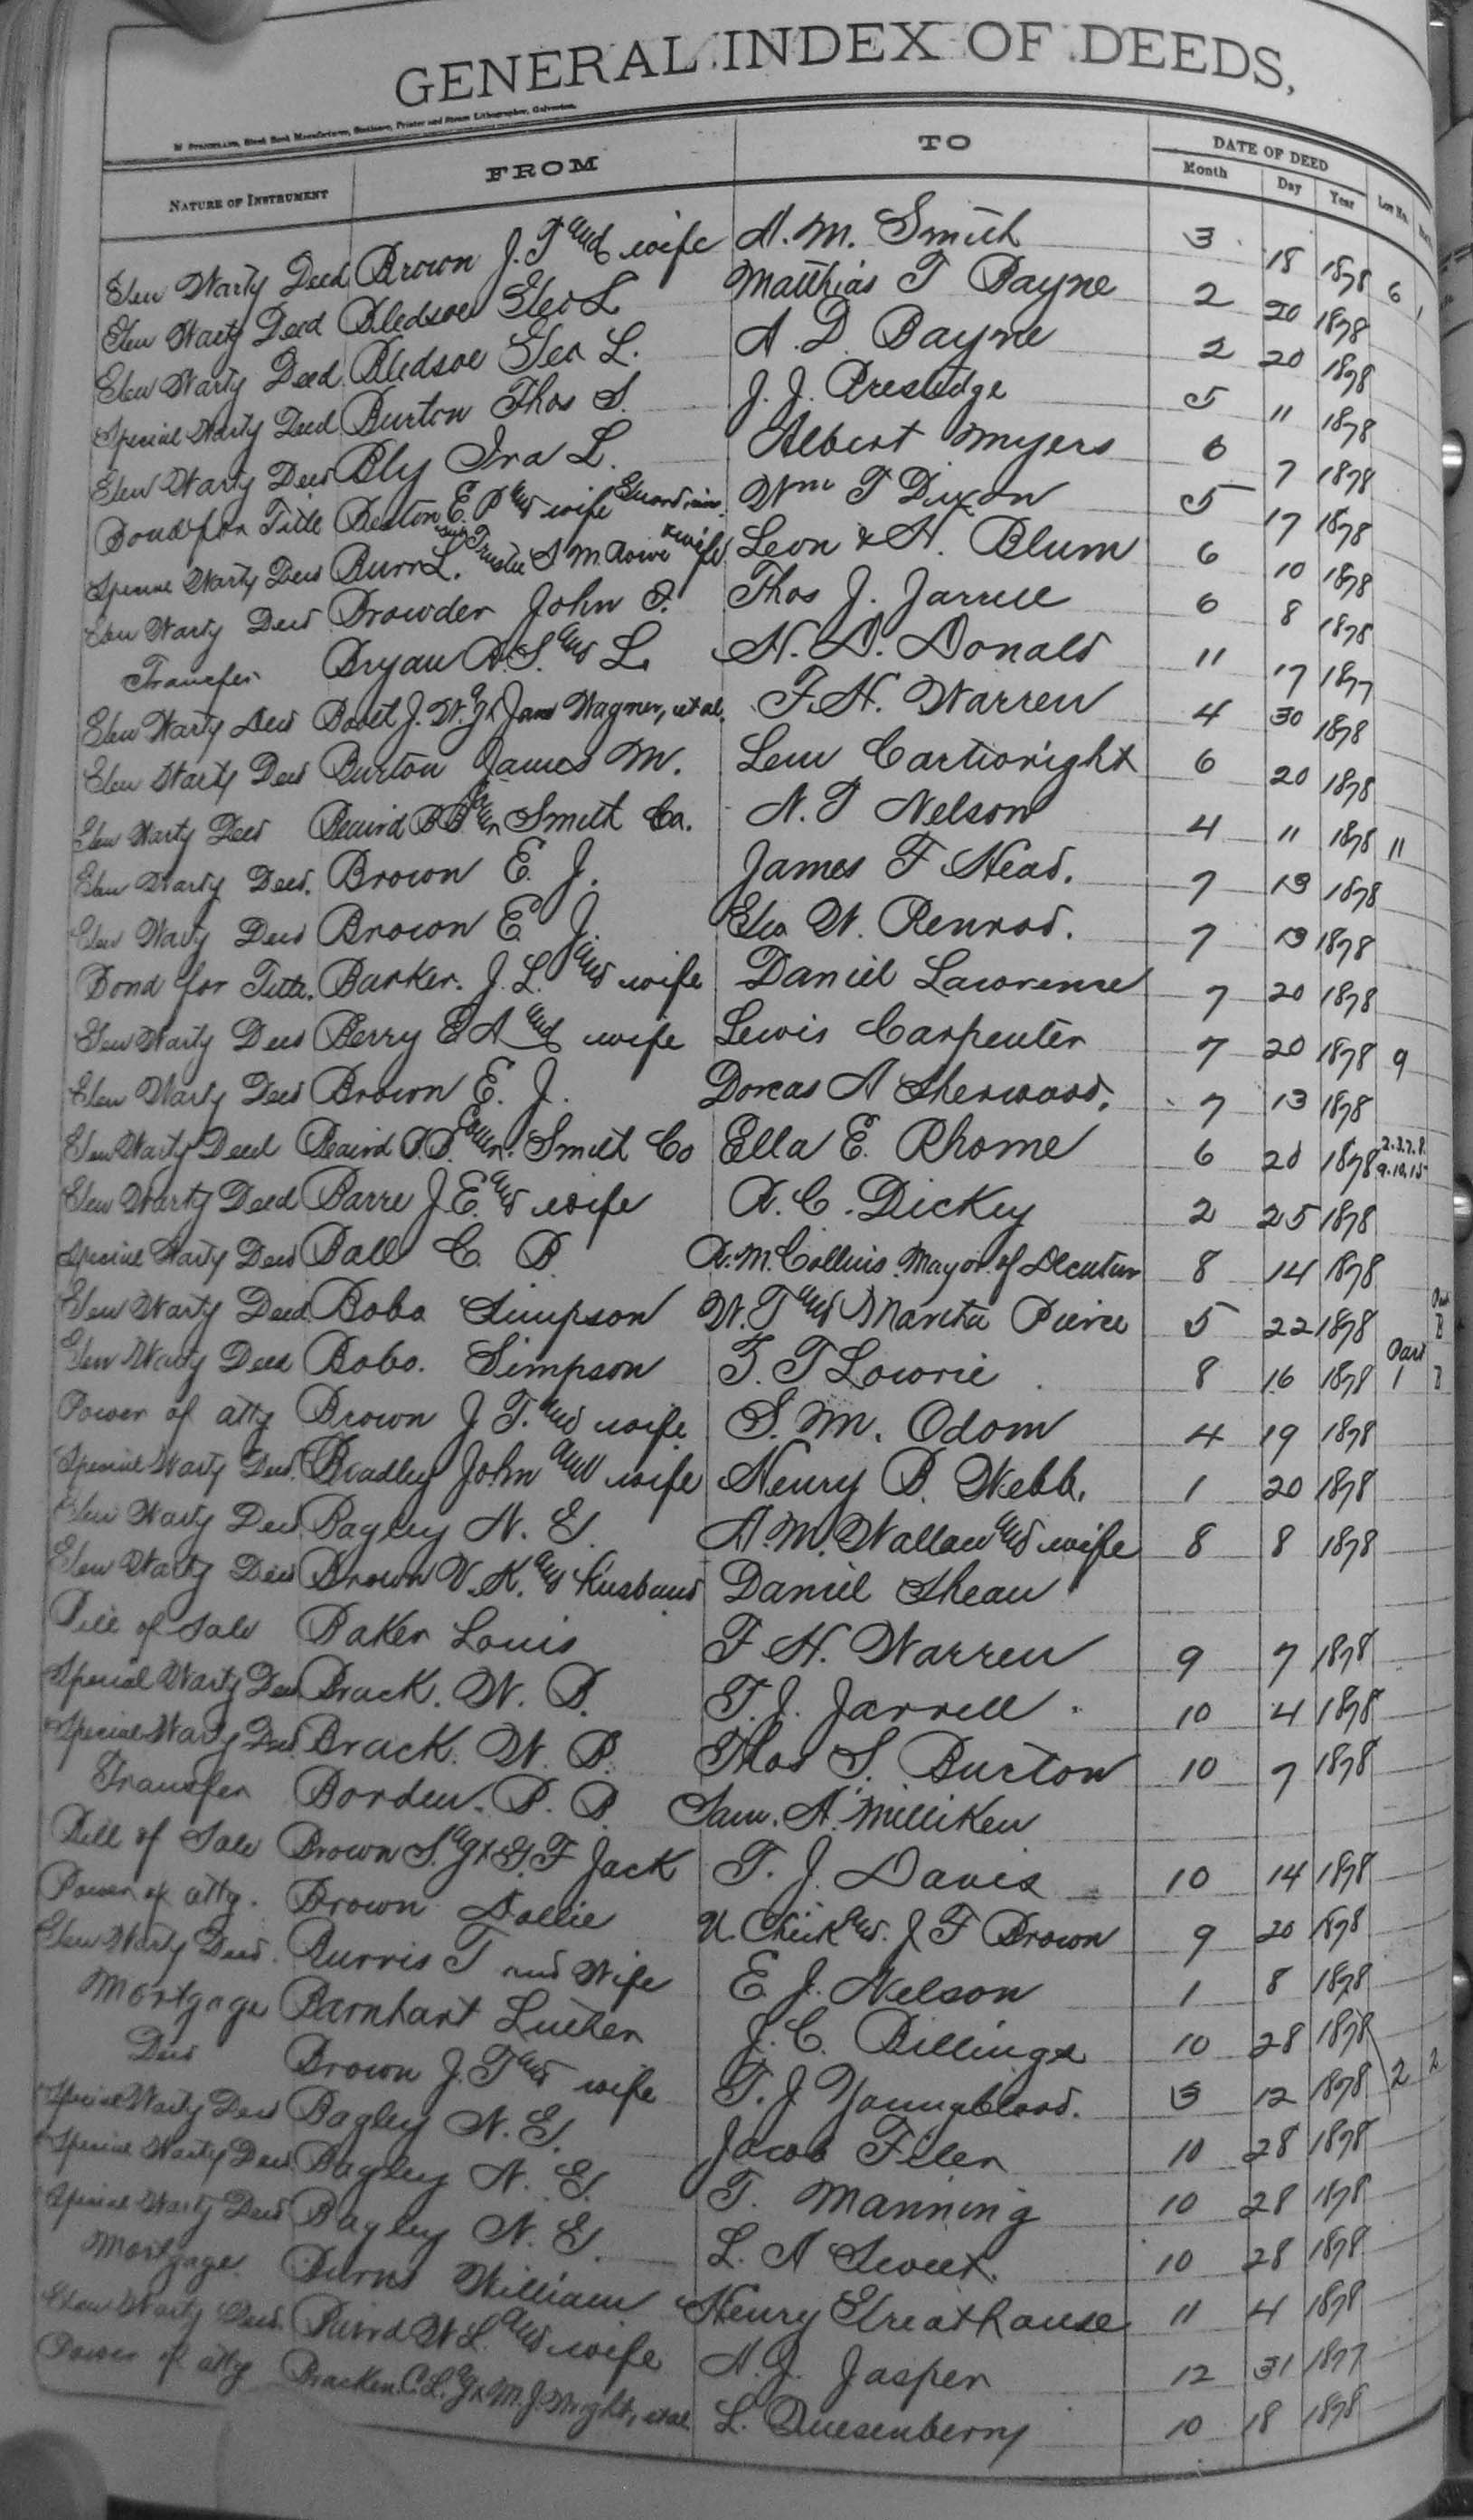 GENERAL INDEX OF DEEDS,
NATURE OF INSTRUMENT FROM TO DATE OF DEED Month Day Year Lot No.
Gen Warty Deed Brown J. T and wife A. M. Smith 3 18 1878 6 1
Gen Warty Deed Bledsoe Geo L Matthias T Payne 2 20 1878
Gen Warty Deed Bledsoe Geo L. A. D. Payne 2 20 1878
Special Warty Deed Burton Thos S. J. J. Prestidge 5 11 1878
Gen Warty Deed Bly Ira L. Albert Myers 6 7 1878
Bond for Title E. P and wife Guardian Wm T Dixon 5 17 1878
Special Warty Deed Burr L. Trustee S M & wife Leon & H. Blum 6 10 1878
Gen Warty Deed Browder John P. Thos J. Jarrell 6 8 1878
Transfer Bryan R. S. and L. N. D. Donald 11 17 1877
Gen Warty Deed J. W. Jas Wagner, et al. F. H. Warren 4 30 1878
Gen Warty Deed Burton James M. Lem Cartwright 6 20 1878
Gen Warty Deed Beaird B B Smith Co. N. T Nelson 4 11 1878 11
Gen Warty Deed. Brown E. J. James F Head. 7 13 1878
Gen Warty Deed Brown E. J. Geo W. Penrod. 7 13 1878
Bond for Title. Barker. J. L. and wife Daniel Lawrence 7 20 1878
Gen Warty Deed Berry E A and wife Lewis Carpenter 7 20 1878 9
Gen Warty Deed Brown E. J. Dorcas A Sherwood. 7 13 1878
Gen Warty Deed Beaird B. B. Smith Co Ella E. Rhome 6 20 1878 2.3.7.8. 9.10.15
Gen Warty Deed Barre J. E. and wife R. C. Dickey 2 25 1878
Special Warty Deed Ball C. B. R. M. Collins Mayor of Decatur 8 14 1878
Gen Warty Deed Bobo Simpson W. T and Pierce 5 22 1878 Part B
Gen Warty Deed Bobo. Simpson T. T Lowrie 8 16 1878 Part 1 B
Power of atty Brown J. T. and wife S. M. Odom 4 19 1878
Special Warty Deed. Bradley John and wife Henry B. Webb. 1 20 1878
Gen Warty Deed Bagley N. G. A. M. Wallace and wife 8 8 1878
Gen Warty Deed Brown V. K. and husband Daniel Shean
Bill of Sale Baker Louis F. H. Warren 9 7 1878
Special Warty Deed Brack. W. B. T. J. Jarrell 10 4 1878
Special Warty Deed Brack. W. B. Thos S. Burton 10 7 1878
Transfer Borden. P. B. Sam. A. Milliken
Bill of Sale Brown S. G. F Jack T. J. Davis 10 14 1878
Power of atty. Brown Dollie Cheek and. J F Brown 9 20 1878
Gen Warty Deed. Burris T and Wife E. J. Nelson 1 8 1878
Mortgage Barnhart Luther J. C. Billings 10 28 1878
Deed Brown J. T and wife T. J. Youngblood. 3 12 1878 2 2
Special Warty Deed Bagley N. G. Jacob Filer 10 28 1878
Special Warty Deed Bagley N. G. T. Manning 10 28 1878
Special Warty Deed Bagley N. G. L. A Sweet. 10 28 1878
Mortgage Burns William Henry Greathouse 11 4 1878
Gen Warty Deed. W. L. and wife A. J. Jasper 12 31 1877
Power of atty Bracken. C. L. M. J. Wright, et al L. Quesenberry 10 18 1878